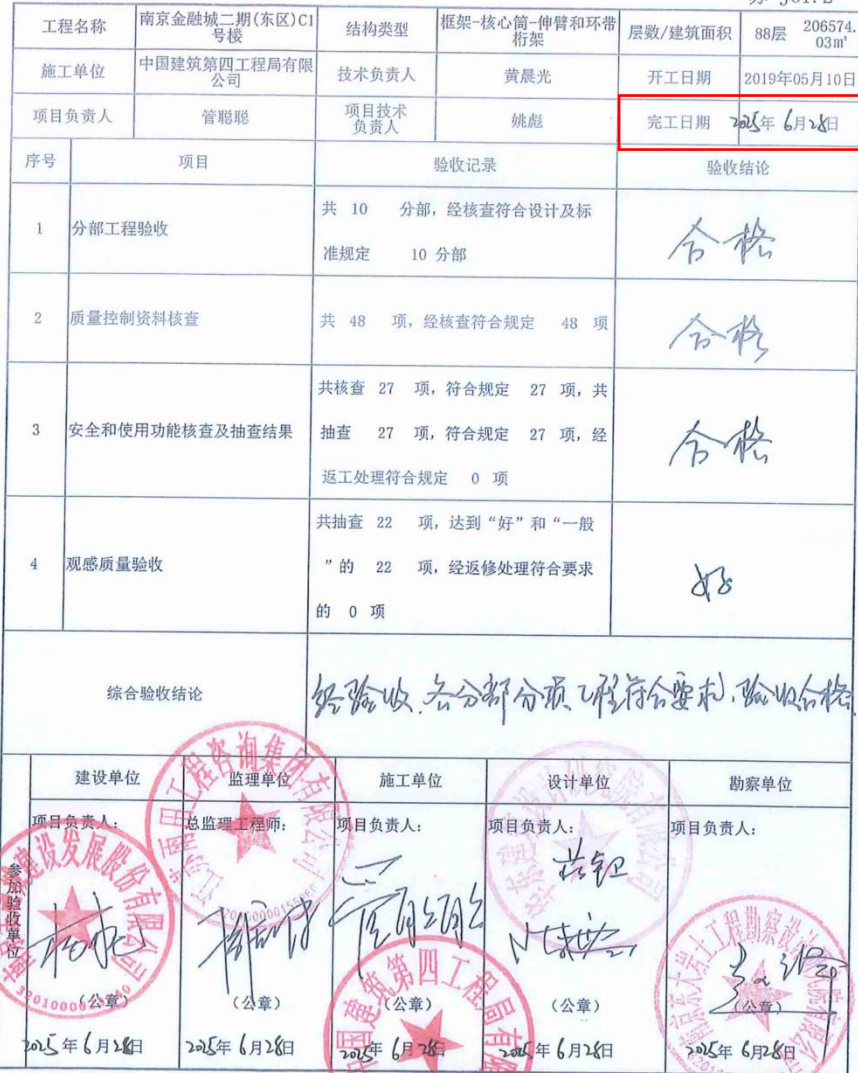 工程名称 南京金融城二期(东区)C1号楼 结构类型 框架-核心筒-伸臂和环带桁架 层数/建筑面积 88层 206574.03㎡
施工单位 中国建筑第四工程局有限公司 技术负责人 黄晨光 开工日期 2019年05月10日
项目负责人 管聪聪 项目技术负责人 姚彪 完工日期 2025年6月28日
序号 项目 验收记录 验收结论
1 分部工程验收 共 10 分部，经核查符合设计及标
准规定 10 分部 合格
2 质量控制资料核查 共 48 项，经核查符合规定 48 项 合格
3 安全和使用功能核查及抽查结果 共核查 27 项，符合规定 27 项，共
抽查 27 项，符合规定 27 项，经
返工处理符合规定 0 项 合格
4 观感质量验收 共抽查 22 项，达到“好”和“一般
”的 22 项，经返修处理符合要求
的 0 项 好
综合验收结论 经验收，各分部分项工程符合要求，验收合格
参加验收单位
建设单位 监理单位 施工单位 设计单位 勘察单位
项目负责人： 总监理工程师： 项目负责人： 项目负责人： 项目负责人：
管聪聪
(公章) (公章) (公章) (公章) (公章)
2025年6月28日 2025年6月28日 2025年6月28日 2025年6月28日 2025年6月28日
建设发展股份有限公司
工程咨询集团有限公司
中国建筑第四工程局有限
建筑设计研究院有限公司